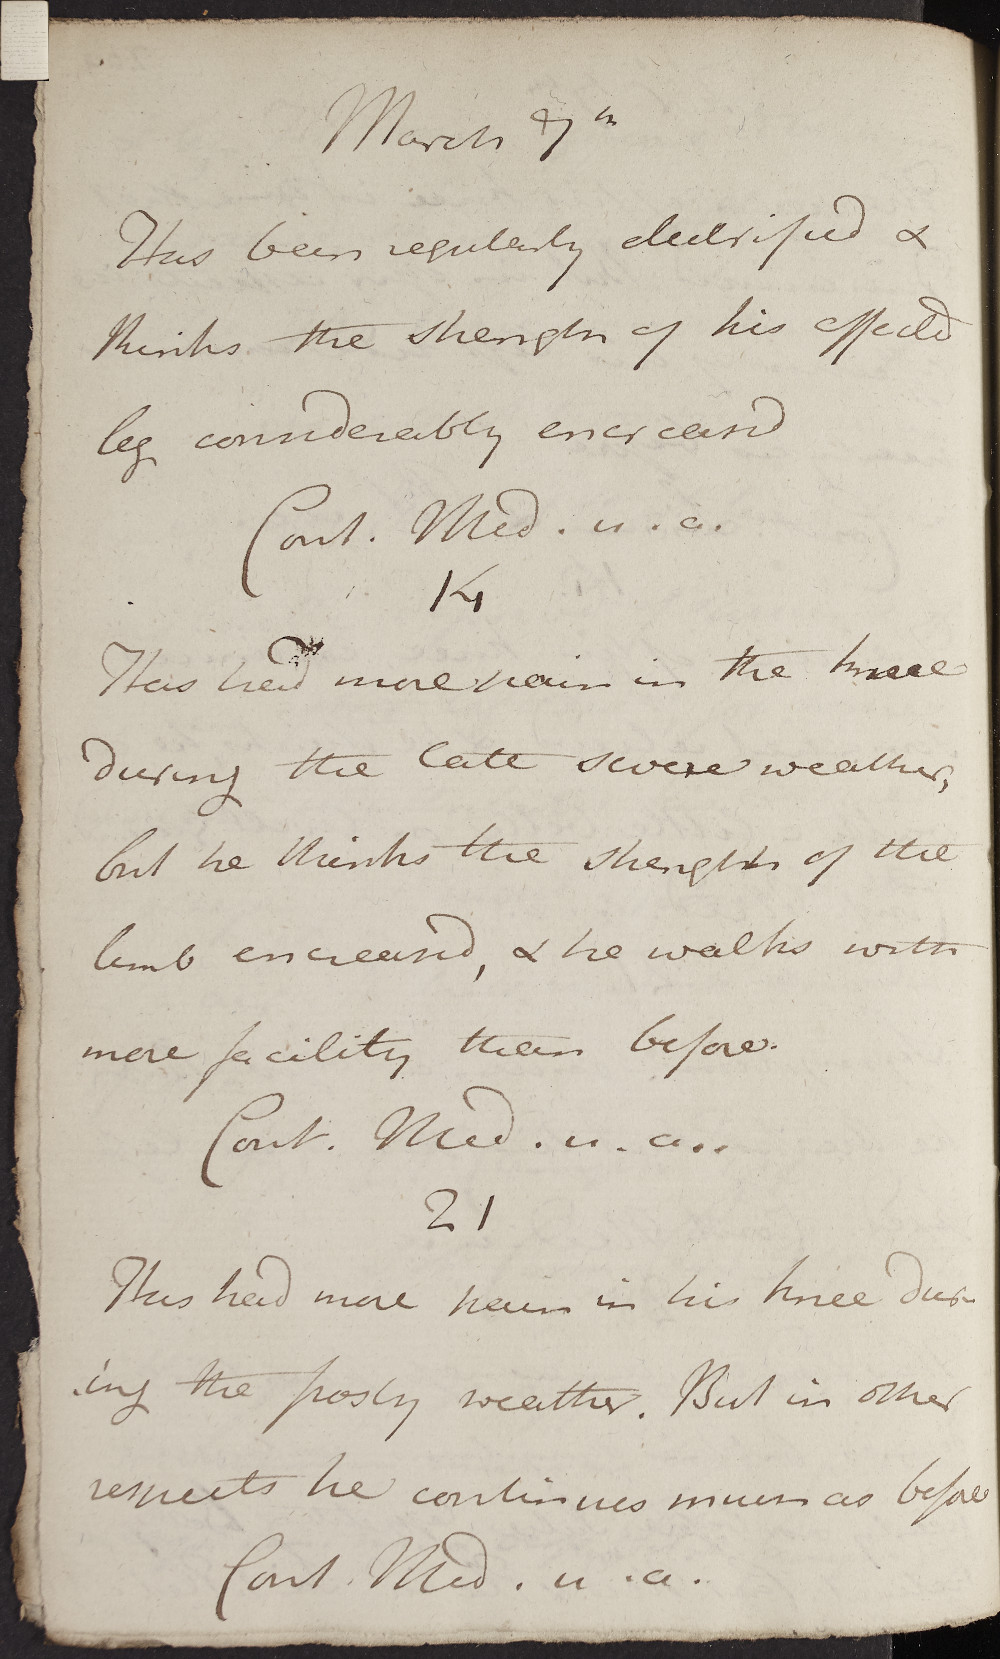 March 7th
Has been regularly electrified &
thinks the strength of his affected
leg considerably encreased
Cont. Med. u. a.
14
Has had more pain in the knee
during the late severe weather,
but he thinks the strength of the
limb encreased, & he walks with
more facility than before.
Cont. Med. u. a..
21
Has had more pain in his knee dur-
ing the frosty weather. But in other
respects he continues much as before
Cont. Med. u. a.